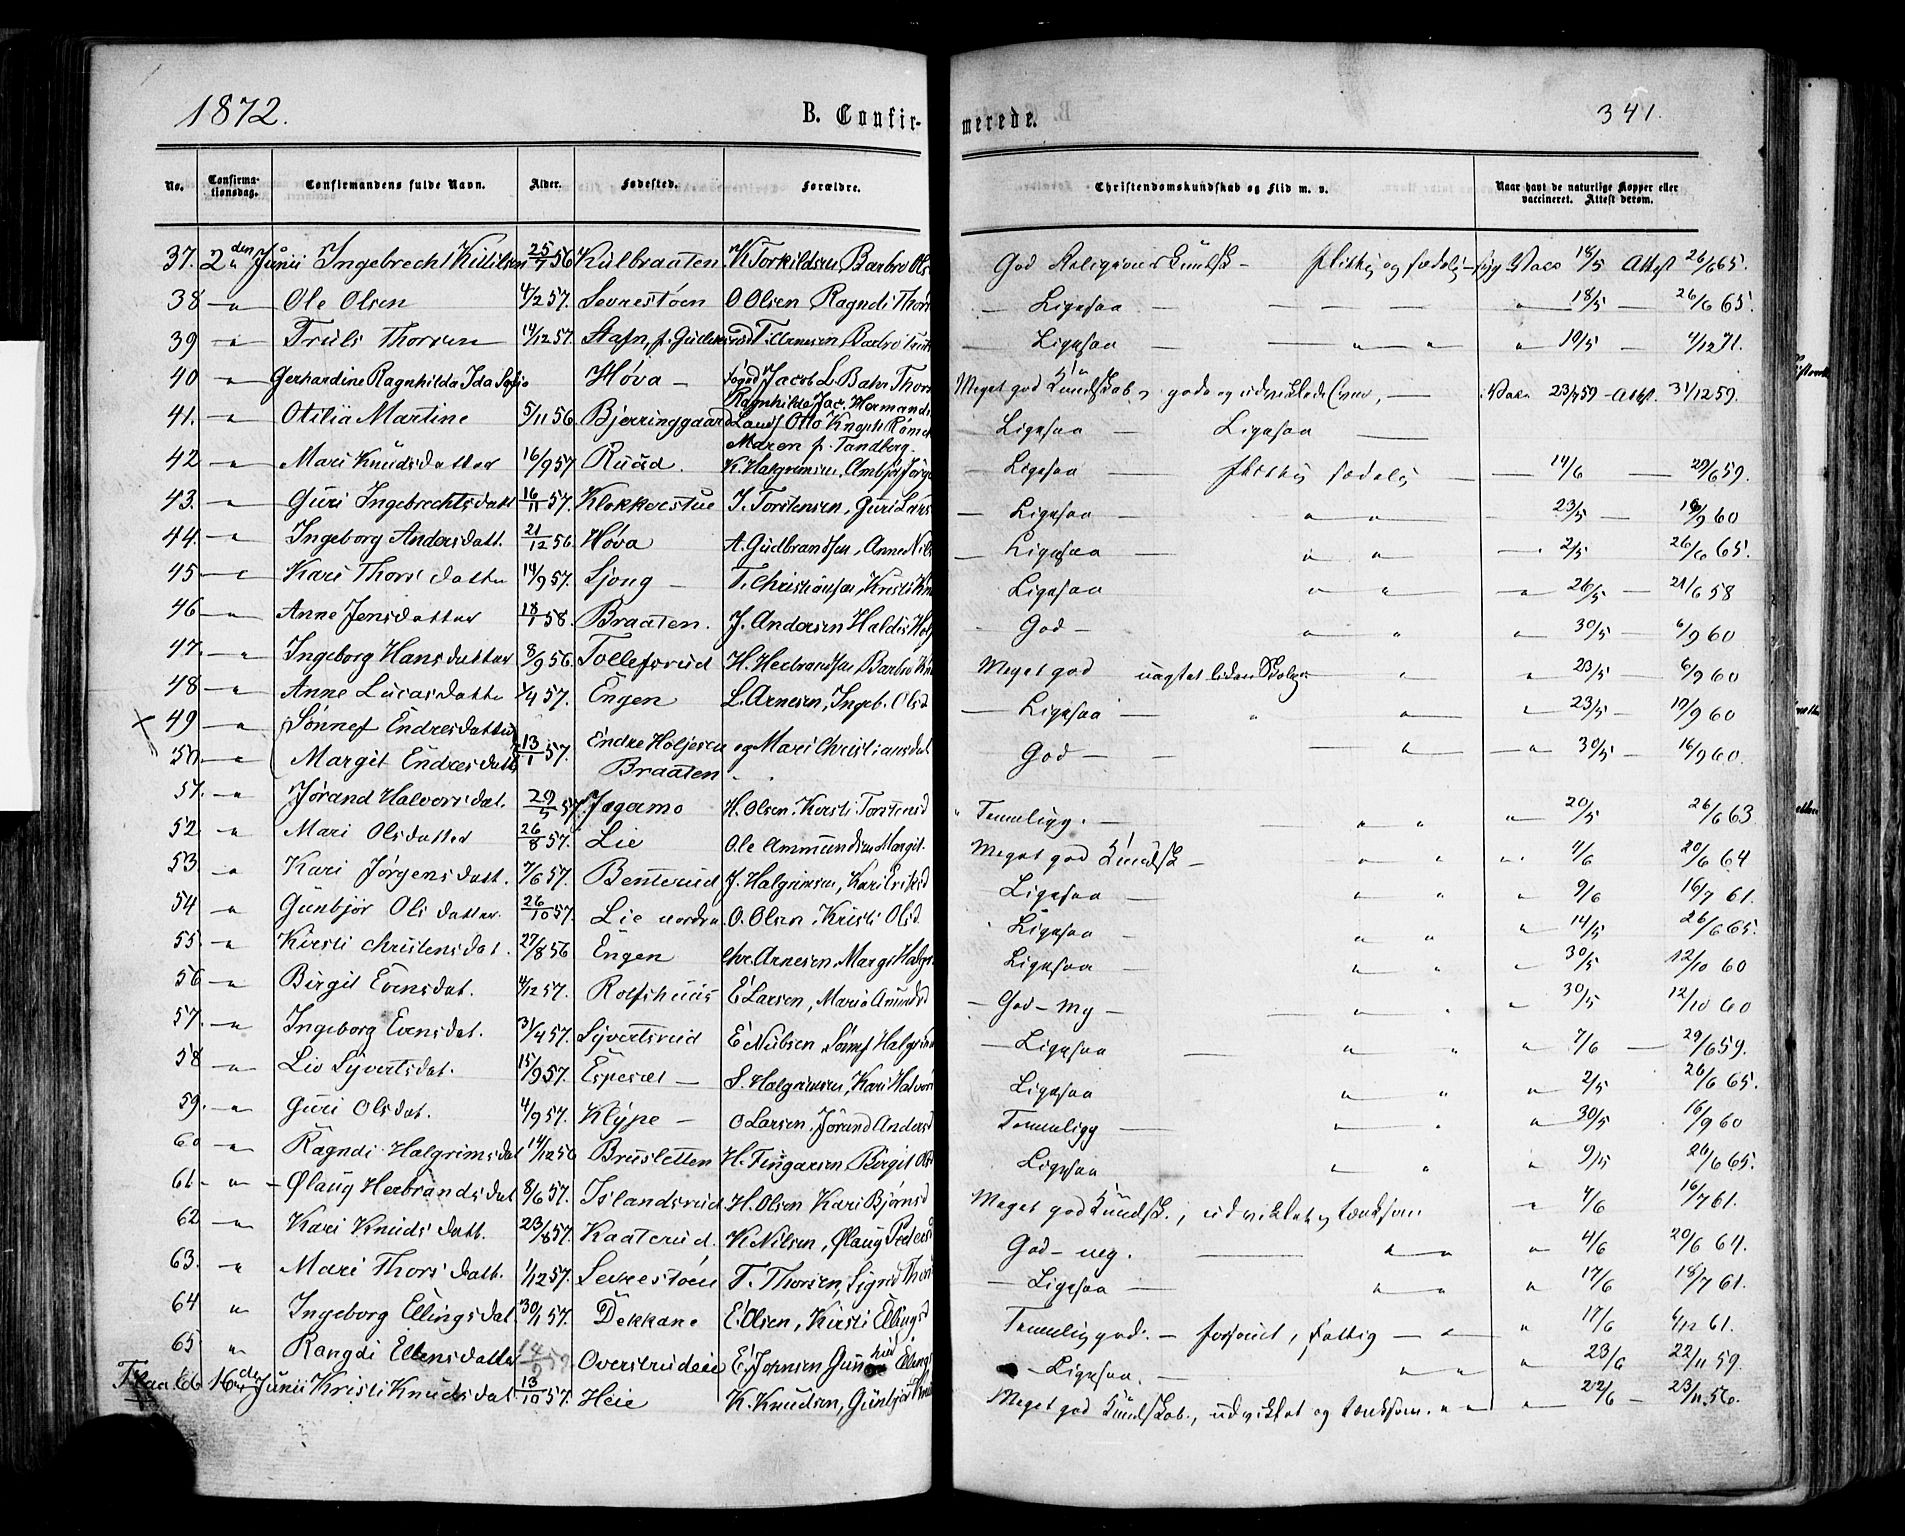 1872.
B. Confir-
merede.
341.
No.
Confirma-
tionsdag.
Confirmandens fulde Navn.
Alder.
Fødested.
Forældre.
Christendomskundskab og Flid m. v.
Naar havt de naturlige Kopper eller
vaccineret. Attest derom.
37. 2den Junii Ingebrecht 25/7 56 Kulbraaten K Torkildsen Barbro Ols God Religions Kundsk - flittig og sædelig Vacc 18/5 Attest 26/6 65.
38 — " Ole Olsen 4/2 57. Sevrestøen O Olsen Ragndi Thors — Ligesaa — " 18/5 — 26/6 65.
39 — " Truls Thorsen 14/12 57. T. Arnesen, Barbro — Ligesaa — " " " 19/5 — 4/12 71.
40 — " Gerhardine Ragnhilda Ida Sofie Høva — Foged Jacob L. Bahr Thorn Meget god Kundskab, gode og udviklede Evner, — Vacc 23/7 59 - Attest. 31/12 59.
Ragnhilde Jac. Hermandi
41. — " Otilia Martine 5/11 56 Bjerringgaard Otto Ligesaa — Ligesaa —
Maren f. Tandberg.
42 — " Mari Knudsdatter 16/9 57 Ruud. K. Halgrimsen, Ambjør Jørge — Ligesaa — flittig sædelig — 14/6 — 29/6 59.
43. — " Guri Ingebrechtsdatt 16/11 57. Klokkerstue I. Torstensen, Guri Lars — Ligesaa — " " 23/5 — 60
44. — " Ingeborg Andersdatt. 21/12 56. Høva A. Gudbrandsen, Anne Nils — Ligesaa — " " — 2/5 26/6 65.
45 — " Kari Thorsdatter 14/9 57. Sjong — T. Christiansen, Kristi Ligesaa " " — " 26/5 — 21/6 58
46 — " Anne Jensdatter 18/1 58. Braaten. J. Andersen Haldis Holj - God - " " " 30/5 — 6/9 60
47. — " Ingeborg Hansdatter 8/9 56. Tollefsrud H. Herbrandsen Barbro Meget god uagtet liden Skolegang " " 23/5 — 6/9 60
48 — " Anne Lucasdatter 1/4 57. Engen L. Arnesen, Ingeb. Olsd — Ligesaa — " " " 23/5 — 19/9 60
49 — " Sønnef Endresdatter
50. — " Margit Endresdatt 13/1 57. Endre Holjesen og Mari Christiansdat God — — " — " 30/5 — 16/9 60.
Braaten
51. — " Jørand Halvorsdat. 29/5 57. Jagermo H. Olsen. Kersti Torstensd Temmeligg. — " " " 20/5 26/6 63
52 " Mari Olsdatter 26/8 57. Lie Ole Ammundsen Margit. Meget god Kundsk — " " " 4/6 20/6 64
53. " Kari Jørgensdatt. 7/6 57. Benterud J. Halgrimsen, Kari Eriksd — Ligesaa — " " " 9/6 16/7 61.
54 " Gunbjør Olsdatter. 26/10 57. Lie nordre O. Olsen, Kristi Olsd. Ligesaa — " " " 14/5 26/6 65.
55. — " Kirsti Christensdat. 27/8 56 Engen Chr. Arnesen. Margit Halgr Ligesaa — " " " 30/5 12/10 60
56 — " Birgit Evensdat. 4/12 57. Rolfshuus E Larsen, Maria Amundsd — God - mg — " " " 30/5 12/10 60
57. — " Ingeborg Evensdat. 31/4 57. Syvertsrud E Nubsen, Sønnef Halgrim — Ligesaa — " " " 7/6 — 29/6 59.
58 " Liv Syvertsdat. 15/9 57. Esperæt — S. Halgrimsen, Kari Halvor Ligesaa " " " 2/5 26/6 65.
59. — " Guri Olsdat. 4/9 57. Klype — O Larsen, Jørand Andersd Temmeligg — " " 30/5 16/9 60
60 — " Ragndi Halgrimsdat 14/12 56 Brusletten H. Fingarsen Birgit Ols Ligesaa " " " 9/5 26/6 65.
61 - " - Ølaug Herbrandsdat 8/6 57. Islandsrud H. Olsen Kari Bjørnsd Meget god Kundsk., udviklet og tænksom " 4/6 16/7 61.
62 — " Kari Knudsdatt. 23/8 57. Kaaterud. K Nilsen, Ølaug Peders God - mg. — " " " 4/6 20/6 64.
63. " Mari Thorsdatt. 1/12 57. Sevrestøen T. Thorsen, Sigrid Thor — Ligesaa — " " " 17/6 18/7 61.
64 " Ingeborg Ellingsdat. 30/1 57. Dekkane E. Olsen, Kirsti Ellingsd Temmelig god. — forsømt, fattig — " " 17/6 61.
65 " Rangdi Ellensdatter 14/9 59 Overstrudeie E. Johnsen Gunhild Elling — Ligesaa. — " " " 23/6 22/11 59.
Flaa 66 16de Junii Kristi Knudsdat 13/10 57. Heie K. Knudsen, Gunbjør Knud Meget god Kundskab, udviklet og tænksom. " " " 22/6 — 23/11 56.